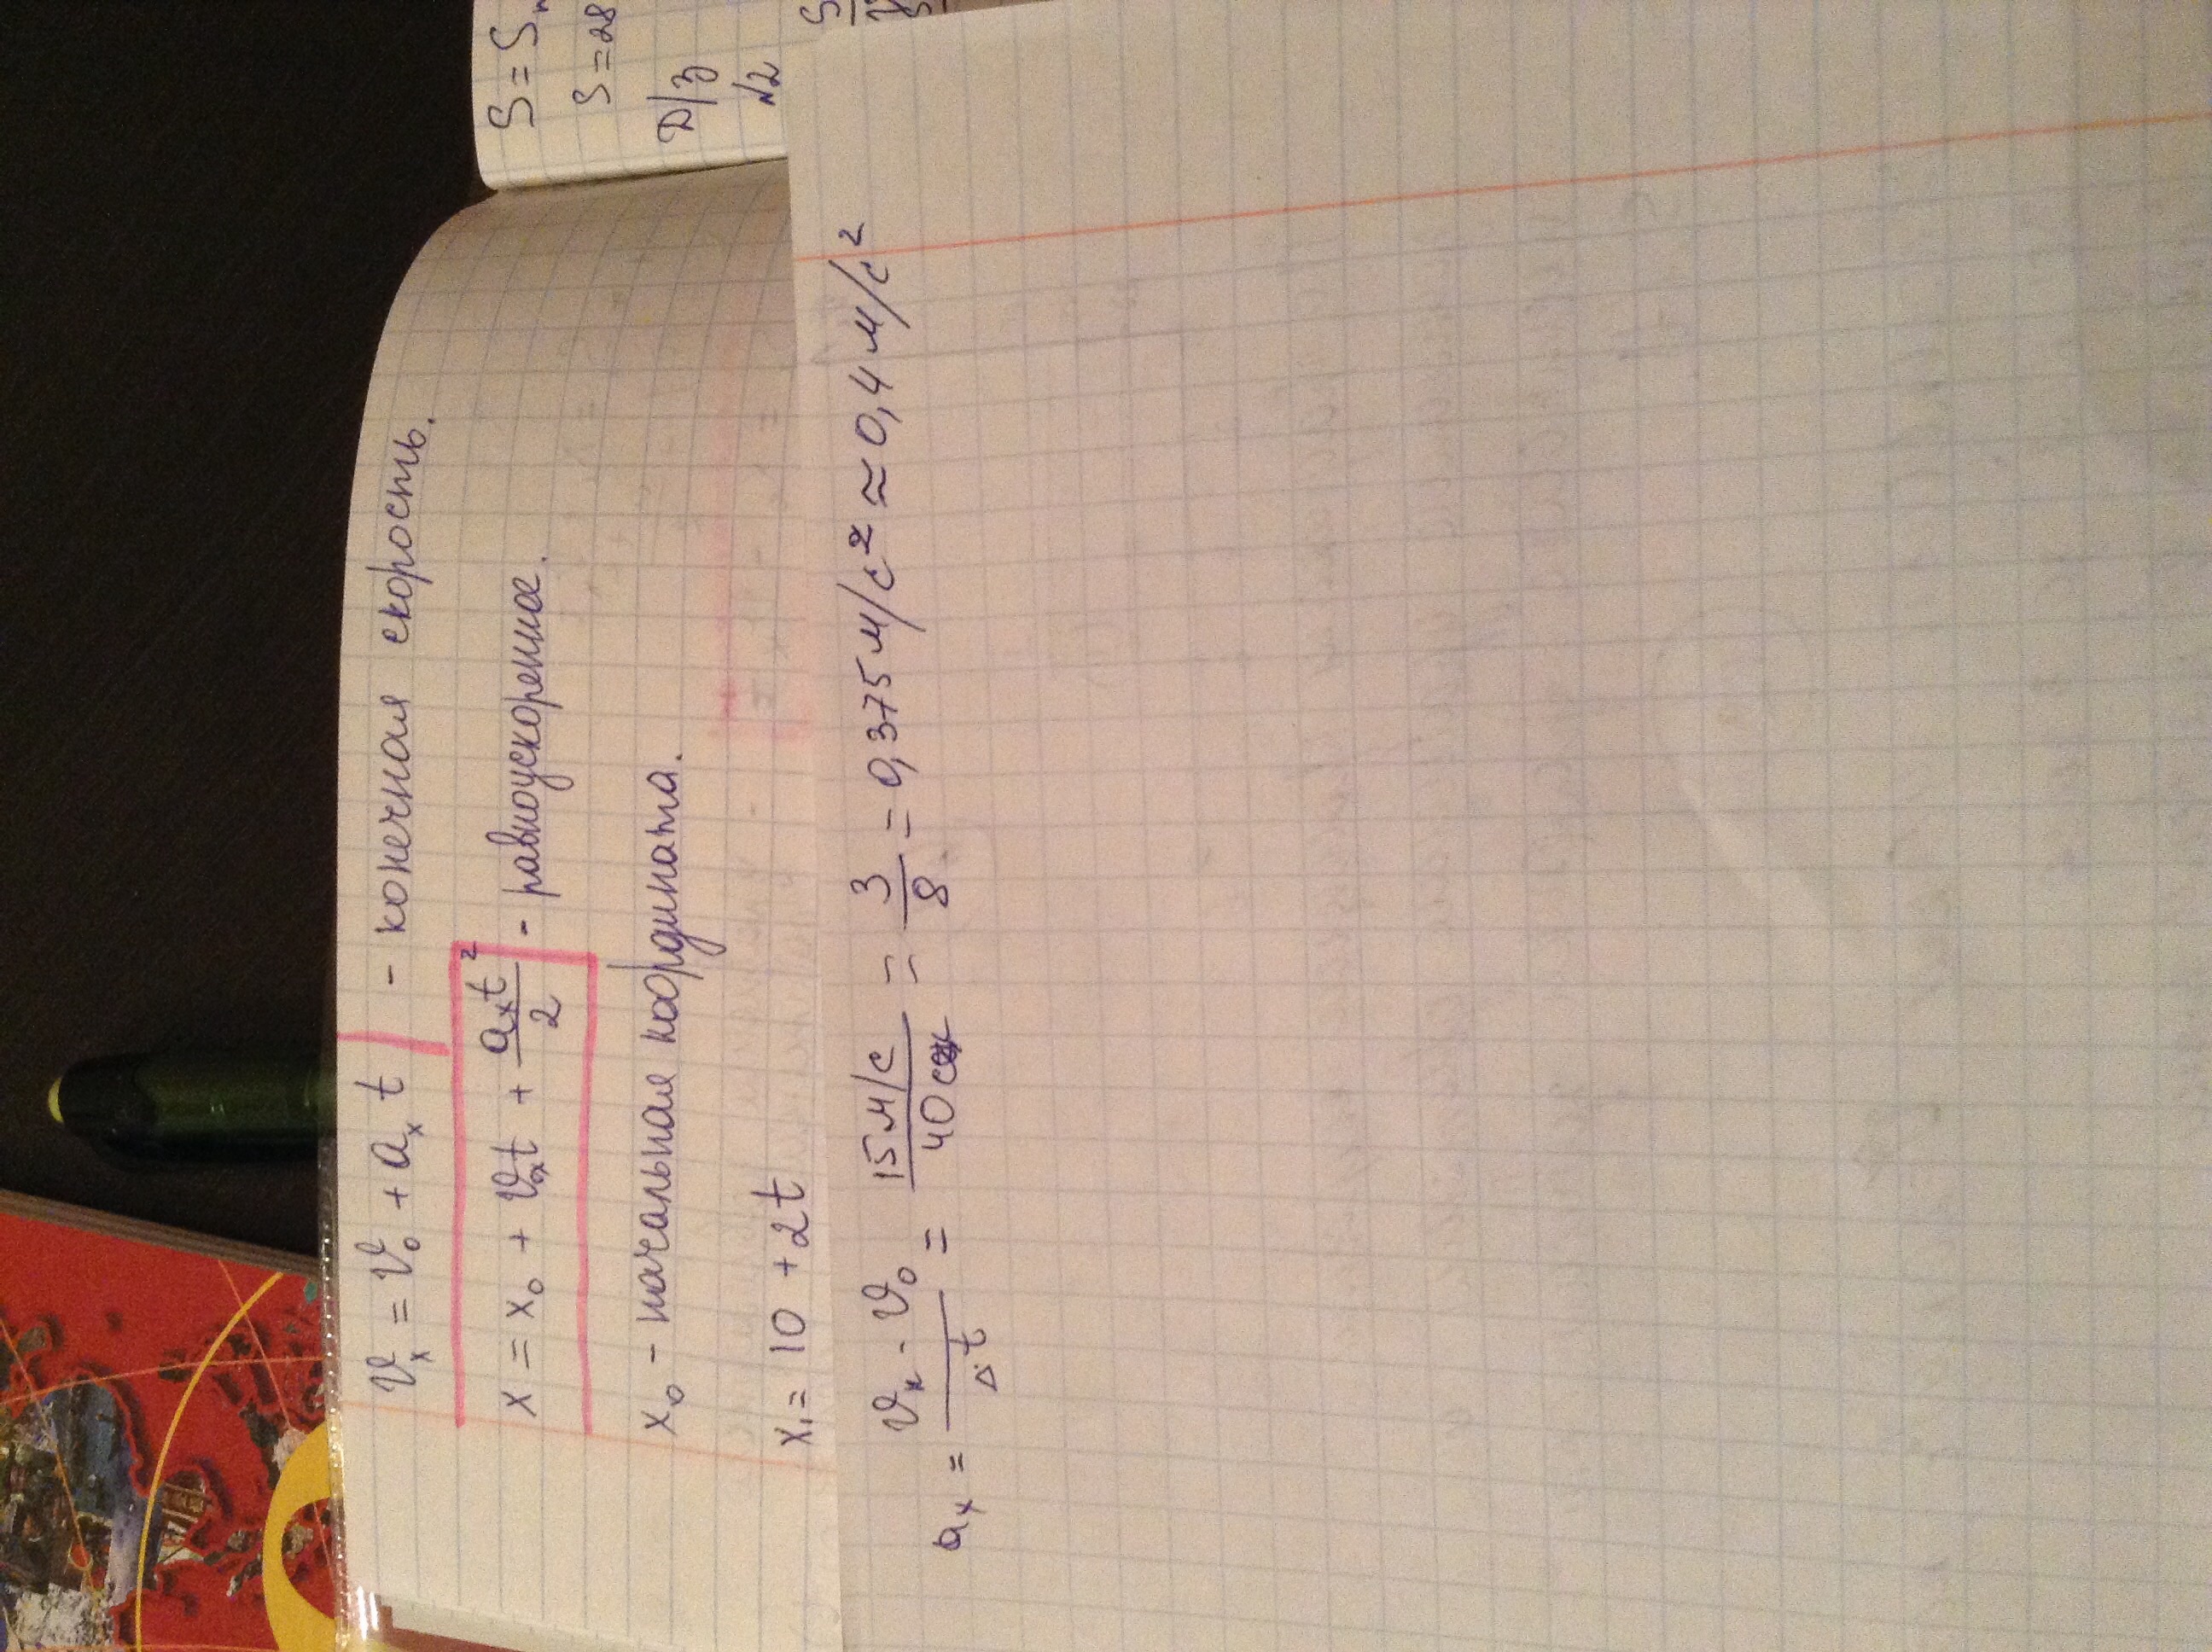 Vₓ = V₀ + aₓ t - конечная скорость.
x = x₀ + V₀ₓt + aₓt²/2 - равноускоренное.
x₀ - начальная координата.
x₁ = 10 + 2t
aₓ = Vₓ - V₀ / Δt = 15 м/с / 40 с = 3/8 = 0,375 м/с² ≈ 0,4 м/с²
S = S
S = 28
Д/з
№2